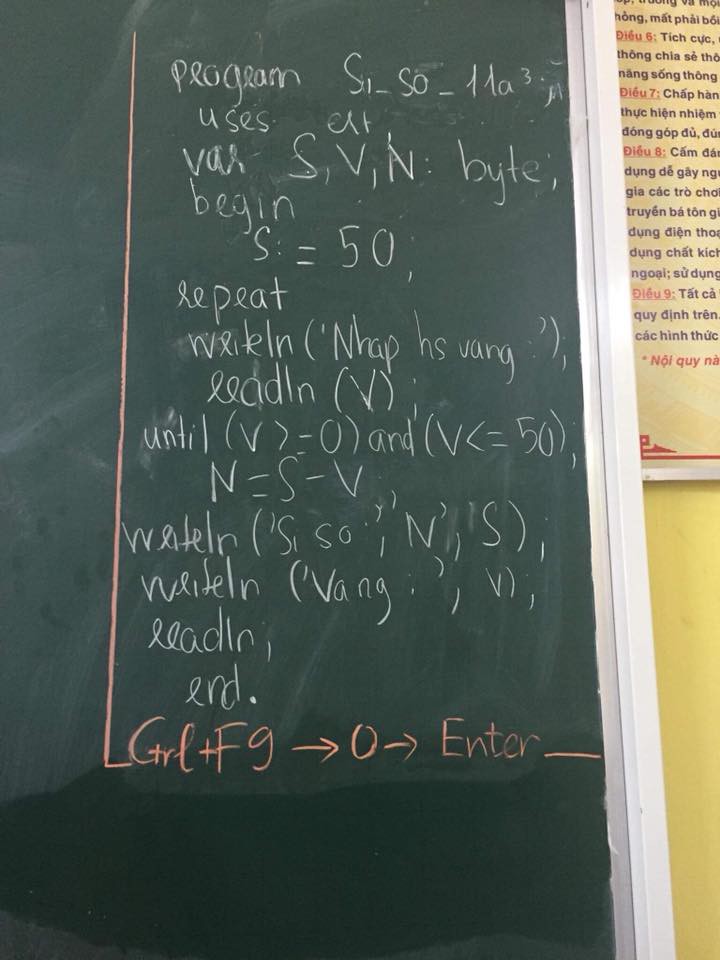 program Si_so_11a3;
uses crt;
var S,V,N: byte;
begin
S:=50;
repeat
writeln('Nhap hs vang:');
readln(V);
until(V>=0)and(V<=50);
N=S-V
writeln('Si so:','N',S);
writeln('Vang:',V);
readln;
end.
Ctrl+F9 → 0 → Enter
hỏng, mất phải bồi
Điều 6: Tích cực,
thông chia sẻ
năng sống thông
Điều 7: Chấp hàn
thực hiện nhiệm
đóng góp đủ,
Điều 8: Cấm
dụng dễ gây
gia các trò chơi
truyền bá tôn
dụng điện
dụng chất kích
ngoại; sử dụng
Điều 9: Tất cả
quy định trên.
các hình thức
* Nội quy